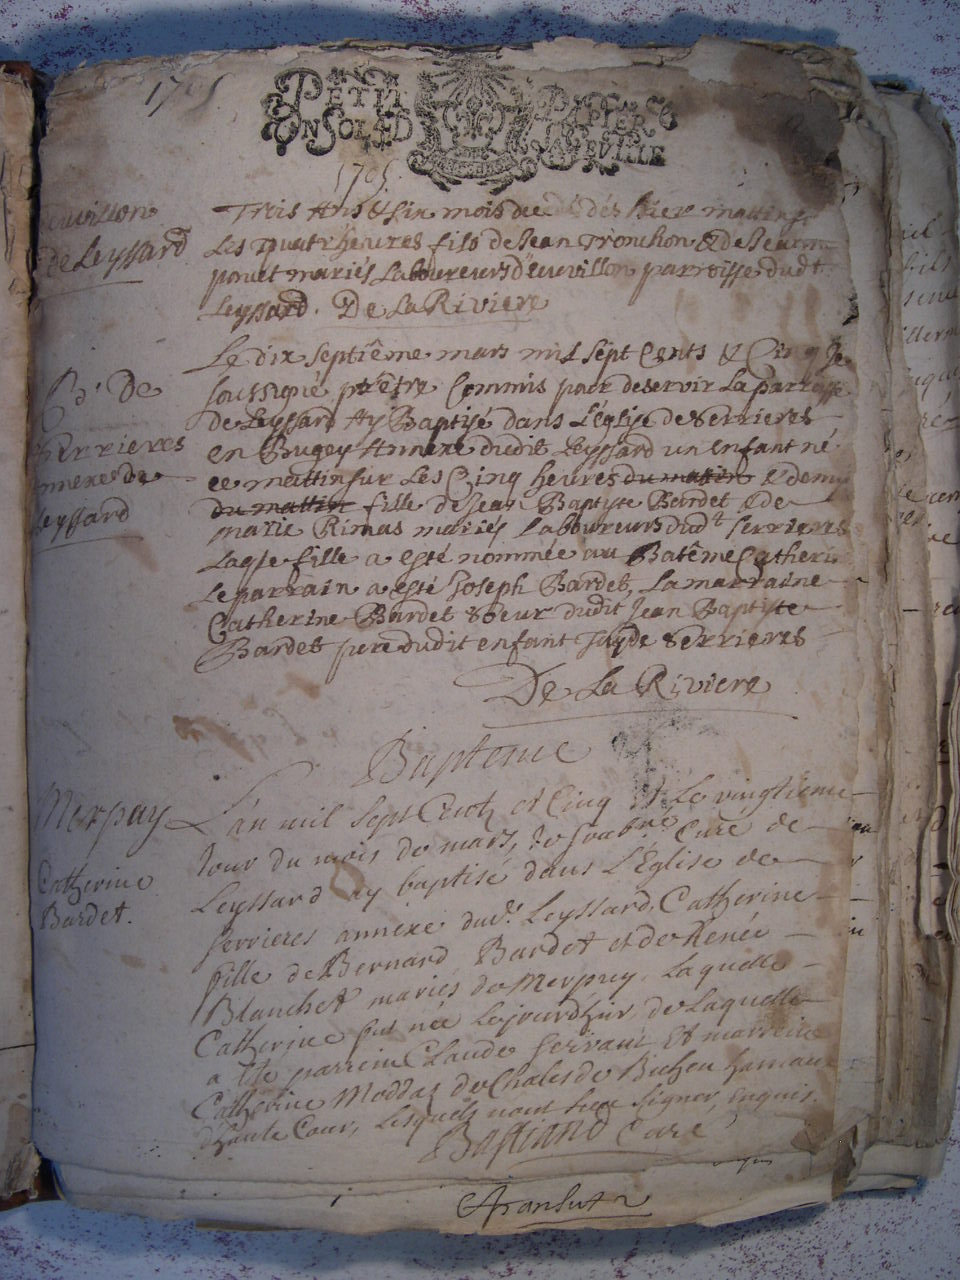 1705
PETIT PAPIER
UN SOL 4D
1705
de Leyssard
Trois Ans & six mois decedés hier mattin sur
Les quatr heures fils de Jean Tronchon & de Jeanne
ponet mariés Laboureurs d'euvillon parroisse dudt
Leyssard. De La Riviere
B. De
Serrieres
Annexe De
Leyssard
Le dix septiême mars mil sept Cents & Cinq Je
soussigné prêtre Commis pour deservir La parroisse
de Leyssard Ay Baptisé dans L'église de Serrieres
en Bugey Annexe dudit Leyssard un enfant né
ce mattin sur Les Cinq heures du matin & demy
du mattin fille de Jean Baptiste Bardet & de
marie Rimas mariés Laboureurs dudt Serrieres
Laqle fille a esté nommée au Batême Catherine
Le parrain a esté Joseph Bardet, La marraine
Catherine Bardet soeur dudit Jean Baptiste
Bardet pere dudit enfant de Serrieres
De La Riviere
Bapteme
Merpuy
Catherine
Bardet.
L'an mil sept Cents et Cinq et Le vingtieme
Jour du mois de mars, Je soubne Curé de
Leyssard ay baptisé dans L'Eglise de
serrieres annexe dud. Leyssard, Catherine
fille de Bernard Bardet et de Renée
Blanchet mariés de Merpuy, Laquelle
Catherine fut née Lejourdhuy de Laquelle
a été parrein Claude servant Et marreine
Catherine Moddaz de Chalesde Bicheu hameau
d'haute Cour, Lesquels n'ont sceu signer, enquis.
Bastiand Curé